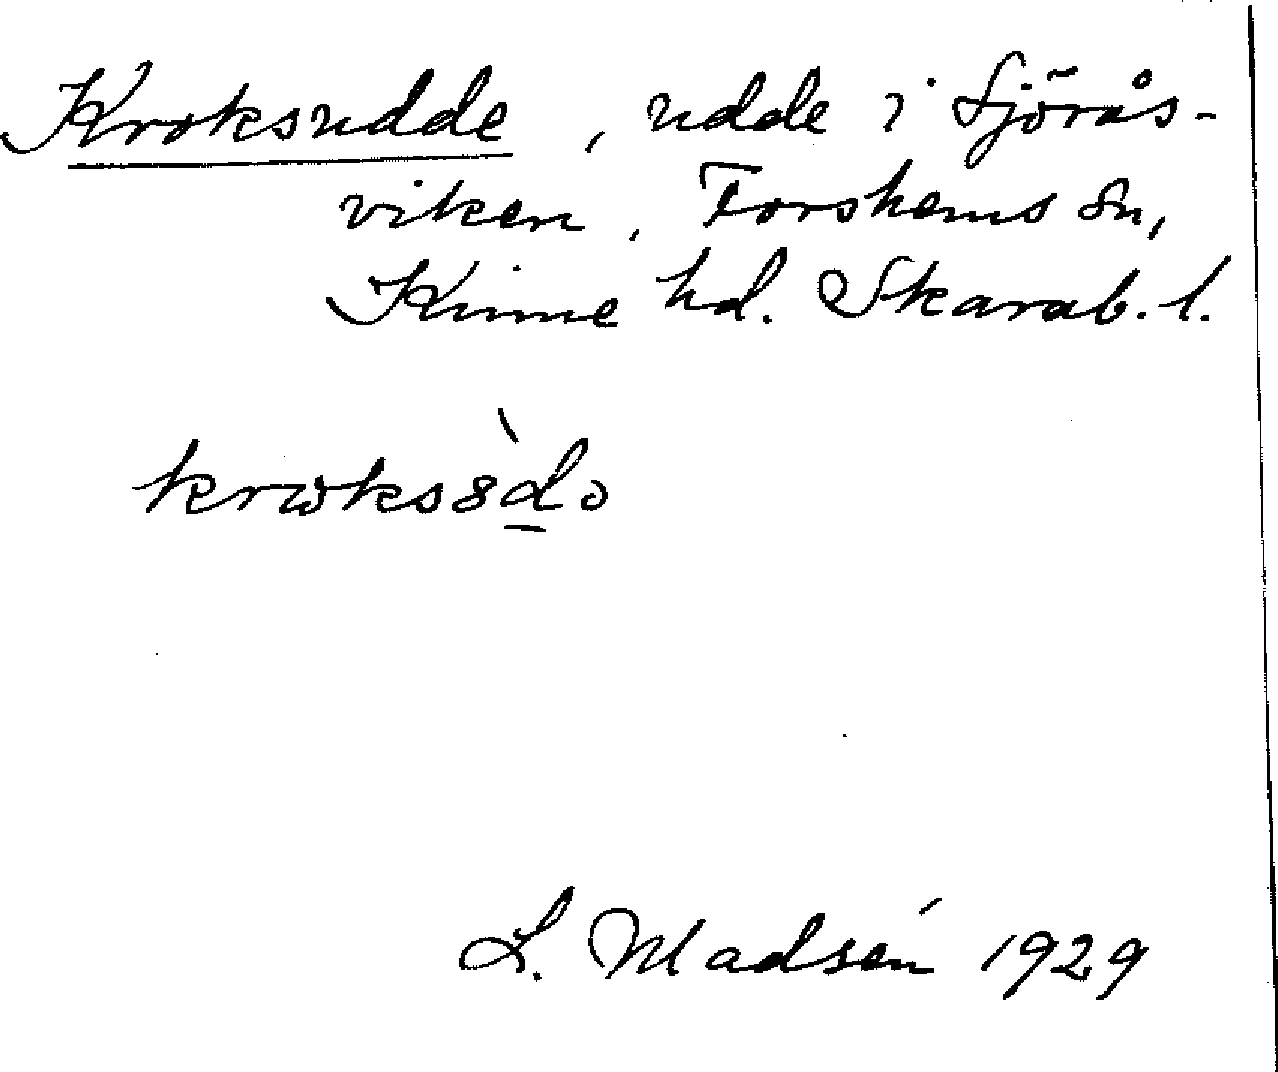 Kroksudde, udde i Sjörås-
viken, Forshems sn,
Kinne hd. Skarab. l.
L. Madsén 1929